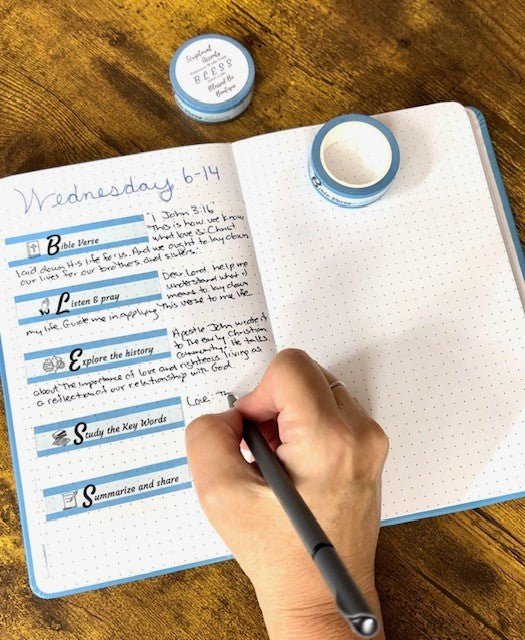 Scriptural
Accents
BLESS
Blessed Be
Boutique
B
Wednesday 6-14
Bible Verse
1 John 3:16
This is how we know
what love is: Christ
laid down His life for us. And we ought to lay down
our lives for our brothers and sisters.
Listen & pray
Dear Lord, help me
understand what it
means to lay down
my life. Guide me in applying This verse to my life.
Explore the history
Apostle John wrote it
to The early Christian
community. He talks
about The importance of love and righteous living as
a reflection of our relationship with God.
Study the Key Words
Love: Th
Summarize and share